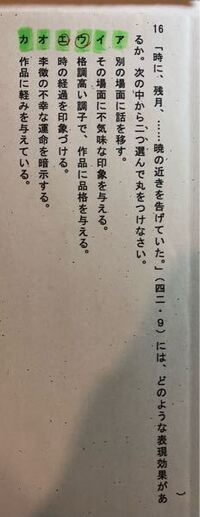 16 「時に、残月、……暁の近きを告げていた。」(四二・9)には、どのような表現効果があ
るか。次の中から二つ選んで丸をつけなさい。
ア 別の場面に話を移す。
イ その場面に不気味な印象を与える。
ウ 格調高い調子で、作品に品格を与える。
エ 時の経過を印象づける。
オ 李徴の不幸な運命を暗示する。
カ 作品に軽みを与えている。
)